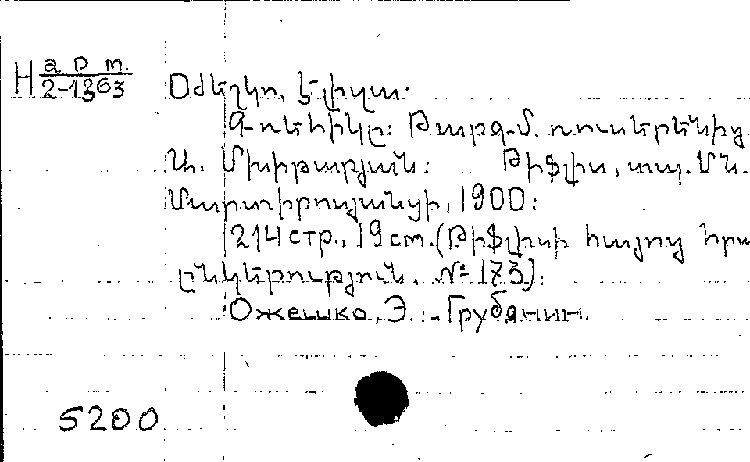 H арт.
2-1363
Օժեշկօ, Էլիզա.
Գռեհիկը: Թարգմ. ռուսերէնից
Ա. Մխիթարյան: Թիֆլիս, տպ. Մն.
Մարտիրոսյանցի, 1900:
214 стр., 19 cm. (Թիֆլիսի հայոց հրա
ընկերություն. № 173):
Ожешко, Э. - Грубянин.
5200